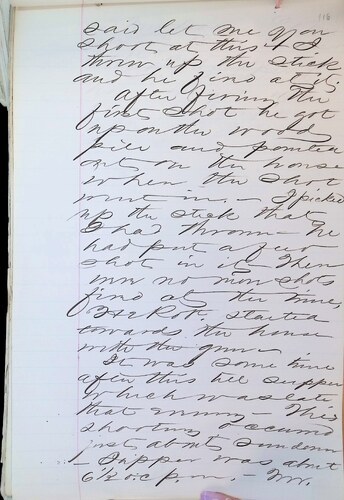 116
said let me you
shoot at this & I
threw up the stick
and he fired at it.
After firing the
first shot he got
up on the wood
pile and pointed
out on the house
where the shot
went in. – I picked
up the stick that
I had thrown – he
had put a few
shot in it. There
no more shots
fired at the time,
started
towards the house
with the gun
It was some time
after this her supper
which was late
that evening – This
shooting occurred
just about sundown
– Supper was about
6½ oc p.m. –